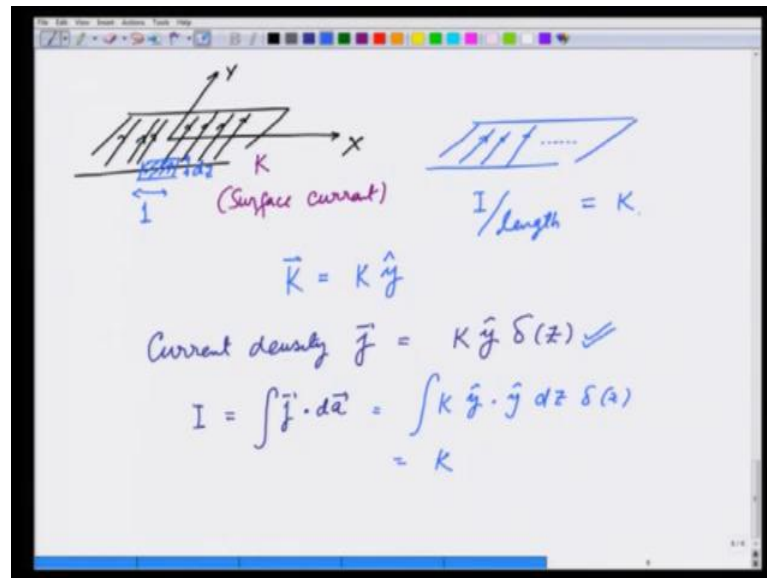 File Edit View Insert Actions Tools Help
Y
X
dz
1
K
(Surface current)
I/length = K.
K⃗ = K ŷ
Current density j⃗ = K ŷ δ(z)
I = ∫ j⃗ · da⃗ = ∫ K ŷ · ŷ dz δ(z)
= K